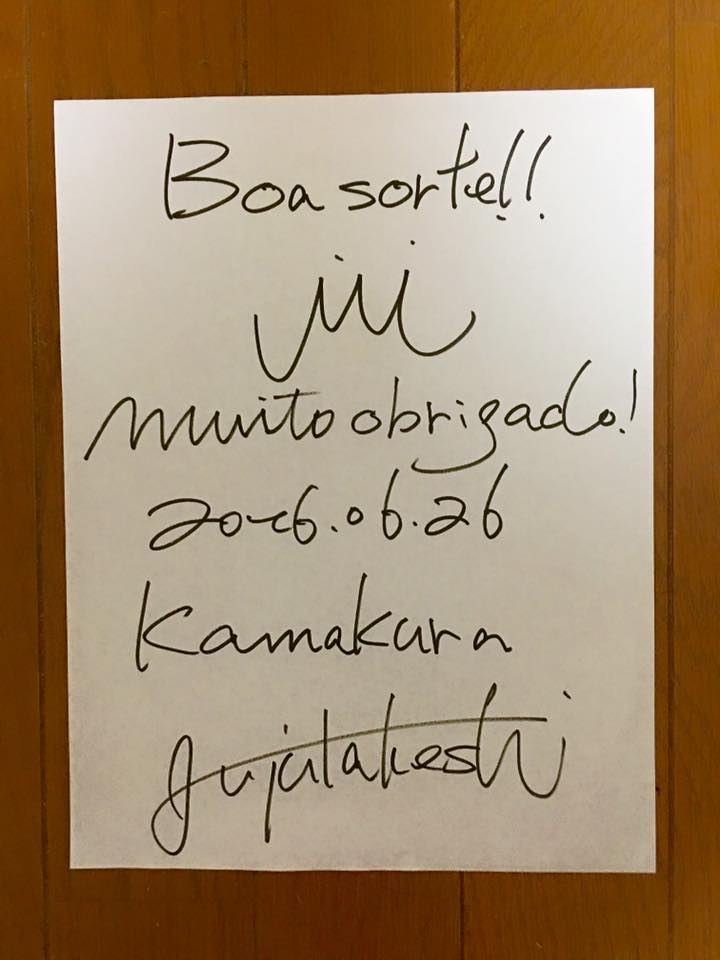 Boa sorte!!
muito obrigado!
2016.06.26
Kamakura